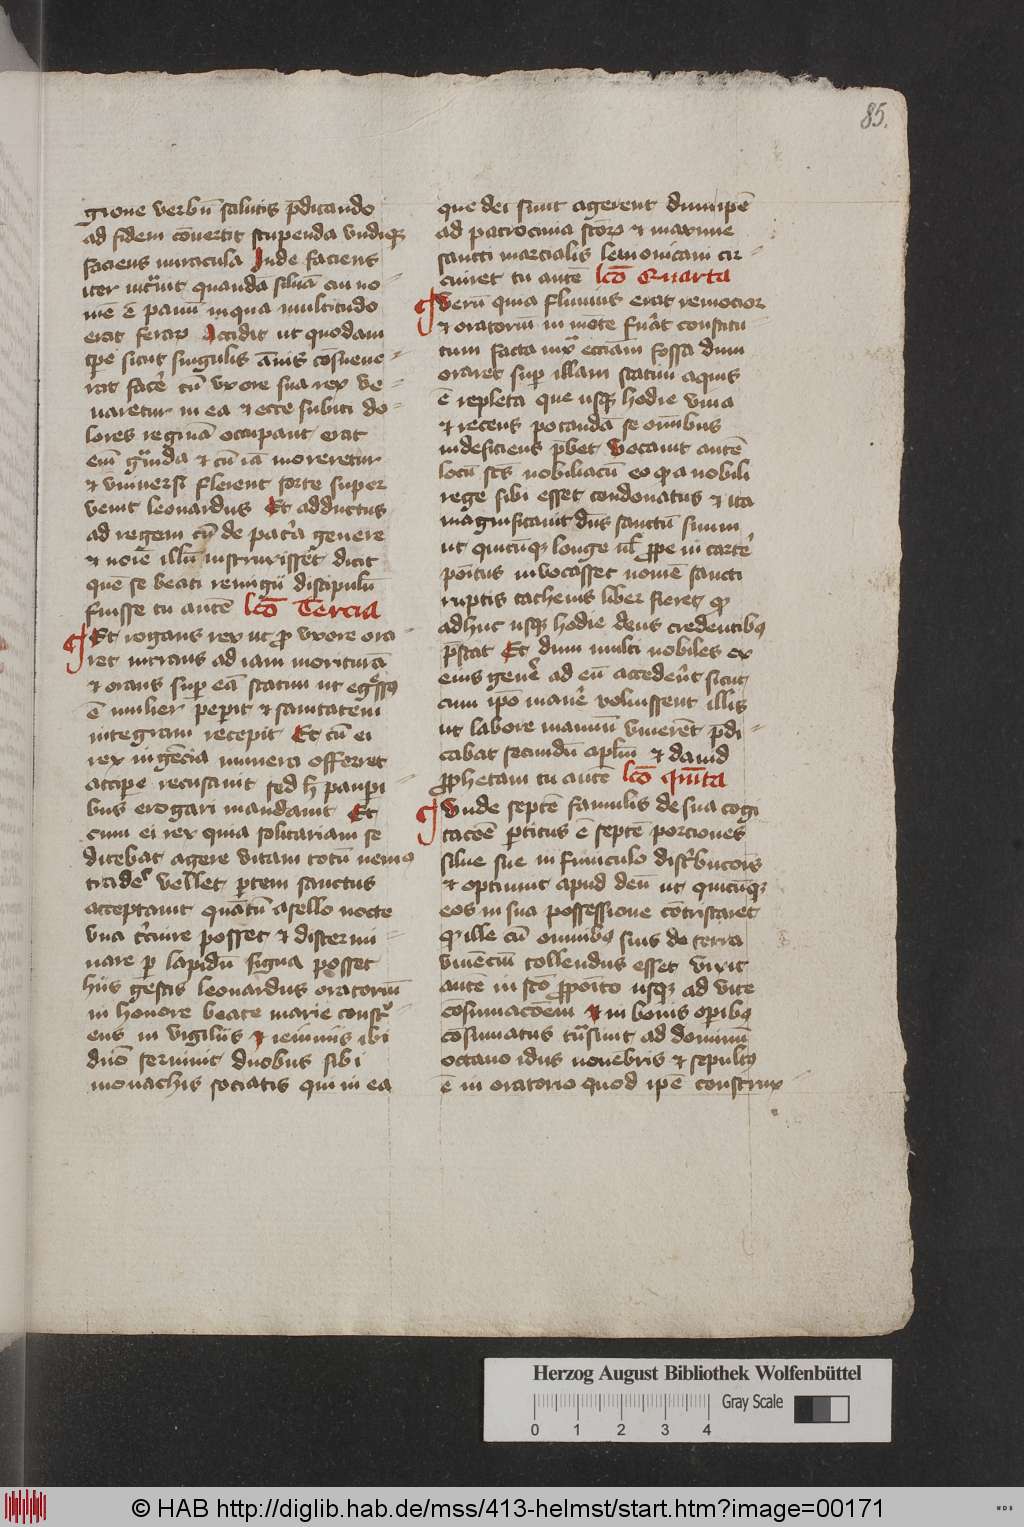 85.
gione verbū salutis p̄dicando
ad fidem cōvertit stupenda vndiqꝫ
faciens miracula Inde faciens
iter intᷓuit quanda siluā cui no-
mē ē pauū in qua multitudo
erat feraꝝ Accidit ut quodam
tp̄e sicut singulis ānis cōsueue-
rat facē cū vxore sua rex ve-
naretur in ea et ecce subiti do-
lores reginā occupant erat
em̄ gᷓuida et cū iā moreretur
et vniuersi flerent forte super
venit leonardus Et adductus
ad regem cū de patⁱa genere
et noīe illū instruxisset dicit
quē se beati remigij discipulū
fuisse tu autē lcō Tercia
Et rogans rex ut ꝓ vxore ora-
ret intrans ad iam morituram
et orans suꝑ eā statim ut eg̃ssꝰ
ē mulier peperit et sanitatem
integram recepit Et cū ei
rex ingēcia munera offerret
accipe recusauit sed h paupi-
bus erogari mandauit Et
cum ei rex quia solitariam se
dicebat agere vitam totū nemꝰ
tradeˀ vellet ꝑtem sanctus
acceptauit quātū asello nocte
vna cⁱcuire posset et distermi-
nare ꝑ lapidū signa posset
hijs gestis leonardus oratoriū
in honore beate marie constᷓ
ens in vigiliis et ieiuniis ibi
dn̄o seruiuit duobus sibi
monachis sociatis qui in ea
que dei sunt agerent dumipē
ad patrocinia sc̄oꝝ et maxime
sancti marcialis lemonicam cir-
cuiret tu autē lcō Quarta
Verū quia fluuius erat remocior
et oratoriū in mōte fuāt constitu-
tum facta iuxᷓ ecciam fossa dum
oraret suꝑ illam statim aquis
ē repleta que usqꝫ hodie viua
et recens potanda se om̄ibus
indeficiens p̄bet vocauit autē
locū sc̄s nobiliacū eo ꝙ a nobili
rege sibi esset condonatus et ita
magnificauit dn̄s sanctū suum
ut quicūqꝫ longe ul̄ ꝓpe in carcēˀ
poītus invocasset nomē sancti
ruptis cathenis liber fieret ꝙ
adhuc usqꝫ hodie deus credentibꝰ
p̄stat Et dum multi nobiles ex
eius genēˀ ad eū accedēˀt sicut
cum ip̄o manēˀ voluissent illis
ut labore manuū viuerēt p̄di-
cabat secundū apl̄m et dauid
ꝓphetam tu autē lcō qunta
Vnde septē famulis de sua cogi
tacōē ꝑtitus ē septē porciones
silue sue in funiculo distⁱbucōis
et optinuit apud deū ut quicūqꝫ
eos in sua possessione cōtristaret
ꝙ ille cū omnibꝰ suis de terra
viuēciū tollendus esset vixit
autē in sc̄o ꝓpoīto usqꝫ ad vite
cōsumacōem et in bonis opibꝰ
cōsumatus tn̄siuit ad dominū
octauo idus nouēbris et sepultꝰ
ē in oratorio quod ipē construx-
Herzog August Bibliothek Wolfenbüttel
0 1 2 3 4 Gray Scale
© HAB http://diglib.hab.de/mss/413-helmst/start.htm?image=00171